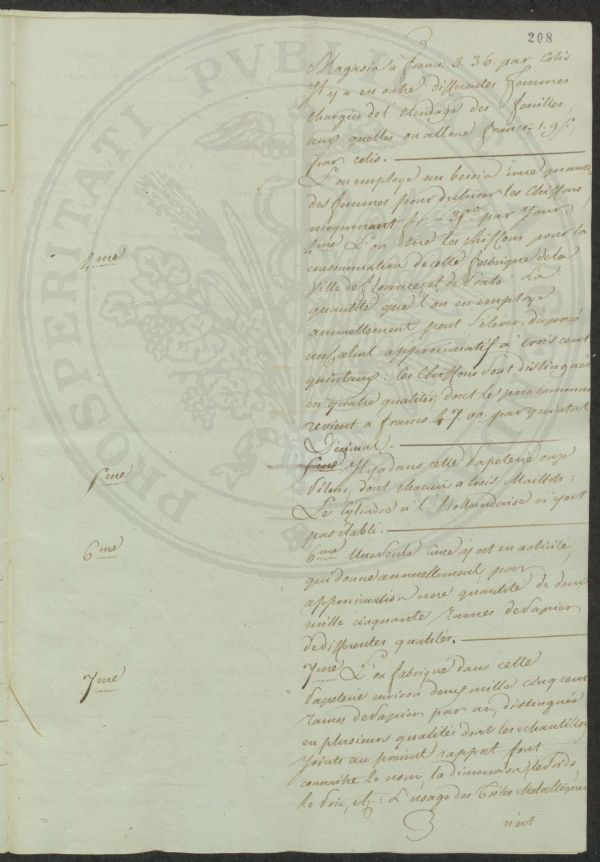 208
Magasin a francs 3. 36. par Colis
Il y a en outre differentes femmes
chargées de l'étendage des feuilles
aux quelles on alloue francs 1. 9
par colis.
L'on employe au besoin une quantité
des femmes pour délivrer les chiffons
moyennant par Jour
4me
4me L'on tire les chiffons pour la
consommation de cette fabrique de la
Ville de florence, et de Prato. La
quantité que l'on en employe
annuellement peut s'elever d'après
un Calcul approximatif a trois cent
quintaux: Ces chiffons sont distingués
en quatre qualités, dont le prix commun
revient a francs 4 7 00. par quintal
Décimal.
5me
5me Il y a dans cette Papeterie onze
Pilons, dont chacun a trois Maillets:
Le Cylindre a l'Hollandaise n'y est
pas établi.
6me
6me Une seule Cuve y est en activité,
qui donne annuellement, par
approximation une quantité de deux
mille cinquante rames de Papier
de differentes qualités.
7me
7me L'on fabrique dans cette
Papeterie environ deux mille cinq cent
rames de Papier par an, distinguées
en plusieurs qualités dont les echantillons
joints au present rapport font
connaître le nom, la dimension, les Poids
le Prix, etc: L'usage des Toiles Metalliques
n'est